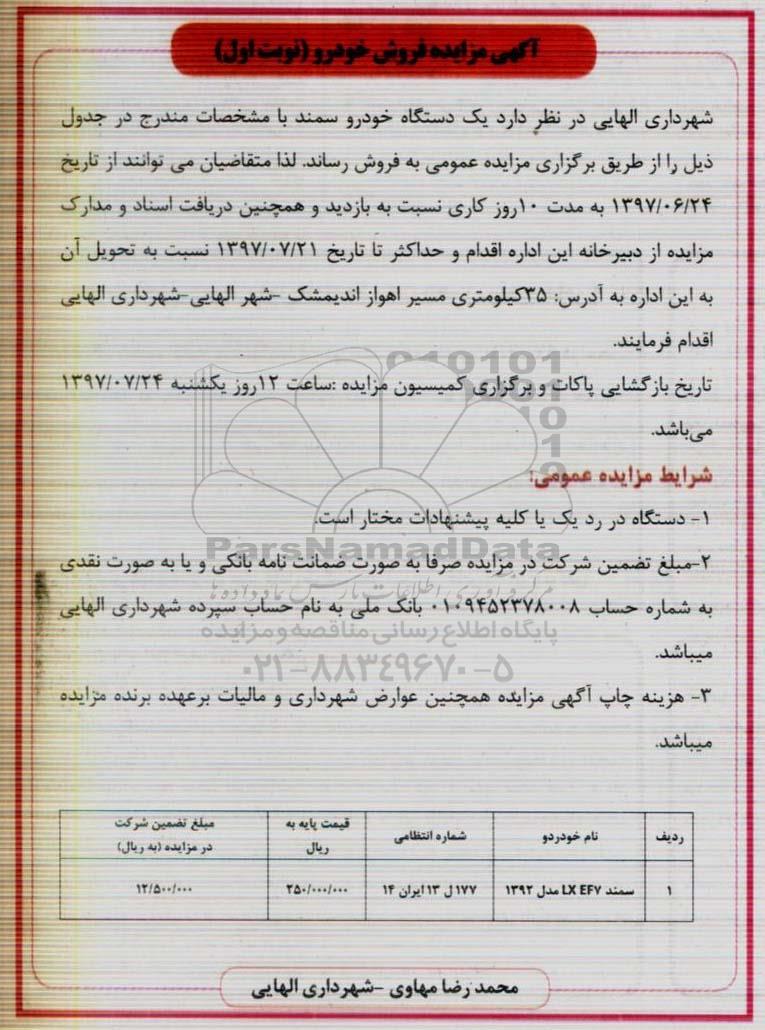 آگهی مزایده فروش خودرو (نوبت اول)
شهرداری الهایی در نظر دارد یک دستگاه خودرو سمند با مشخصات مندرج در جدول
ذیل را از طریق برگزاری مزایده عمومی به فروش رساند. لذا متقاضیان می توانند از تاریخ
۱۳۹۷/۰۶/۲۴ به مدت ۱۰روز کاری نسبت به بازدید و همچنین دریافت اسناد و مدارک
مزایده از دبیرخانه این اداره اقدام و حداکثر تا تاریخ ۱۳۹۷/۰۷/۲۱ نسبت به تحویل آن
به این اداره به آدرس: ۳۵کیلومتری مسیر اهواز اندیمشک -شهر الهایی-شهرداری الهایی
اقدام فرمایند.
تاریخ بازگشایی پاکات و برگزاری کمیسیون مزایده :ساعت ۱۲روز یکشنبه ۱۳۹۷/۰۷/۲۴
می‌باشد.
شرایط مزایده عمومی:
۱- دستگاه در رد یک یا کلیه پیشنهادات مختار است.
ParsNamadData
۲-مبلغ تضمین شرکت در مزایده صرفا به صورت ضمانت نامه بانکی و یا به صورت نقدی
مرکز فرآوری اطلاعات پارس نماد داده ها
به شماره حساب ۰۱۰۹۴۵۲۳۷۸۰۰۸ بانک ملی به نام حساب سپرده شهرداری الهایی
پایگاه اطلاع رسانی مناقصه و مزایده
میباشد.
۰۲۱-۸۸۳۴۹۶۷۰-۵
۳- هزینه چاپ آگهی مزایده همچنین عوارض شهرداری و مالیات برعهده برنده مزایده
میباشد.
ردیف نام خودردو شماره انتظامی قیمت پایه به ریال مبلغ تضمین شرکت در مزایده (به ریال)
۱ سمند LX EF۷ مدل ۱۳۹۲ ۱۷۷ ل ۱۳ ایران ۱۴ ۲۵۰/۰۰۰/۰۰۰ ۱۲/۵۰۰/۰۰۰
محمد رضا مهاوی -شهرداری الهایی